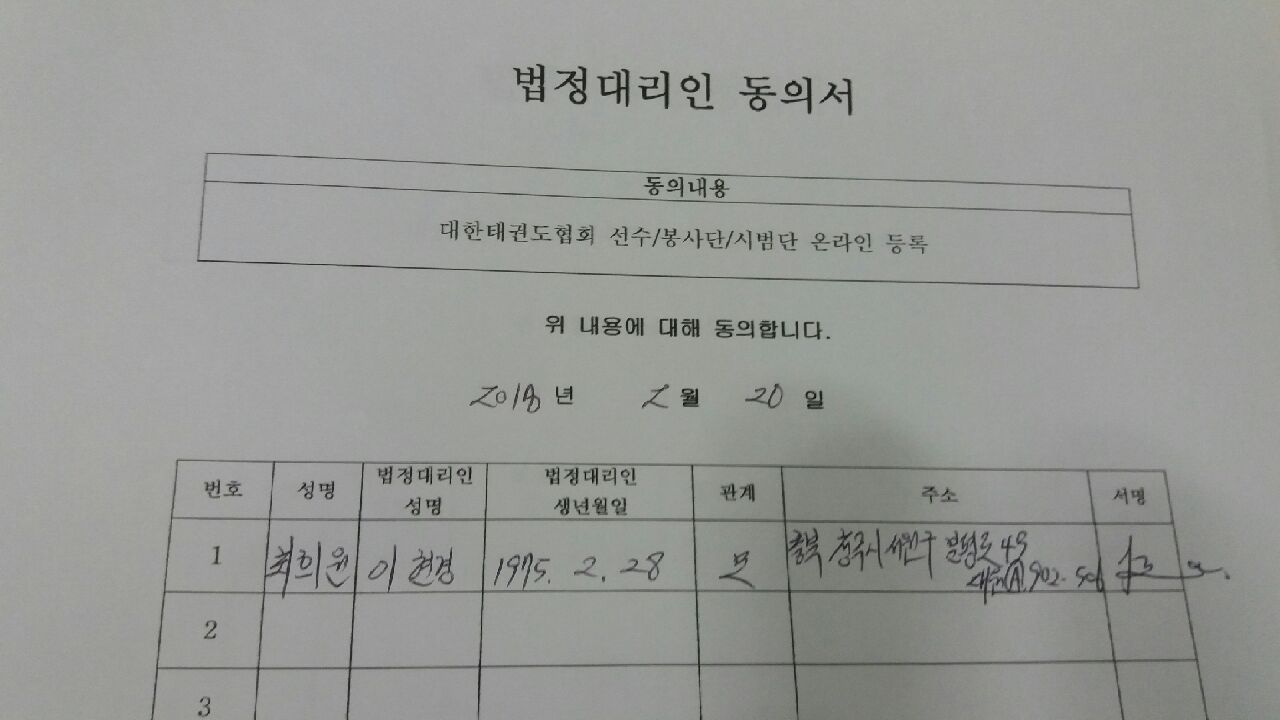 법정대리인 동의서
동의내용
대한태권도협회 선수/봉사단/시범단 온라인 등록
위 내용에 대해 동의합니다.
2018 년 2 월 20 일
번호 성명 법정대리인 성명 법정대리인 생년월일 관계 주소 서명
1 최희원 이현경 1975. 2. 28 모 충북 청주시 서원구 49
902-506
2
3